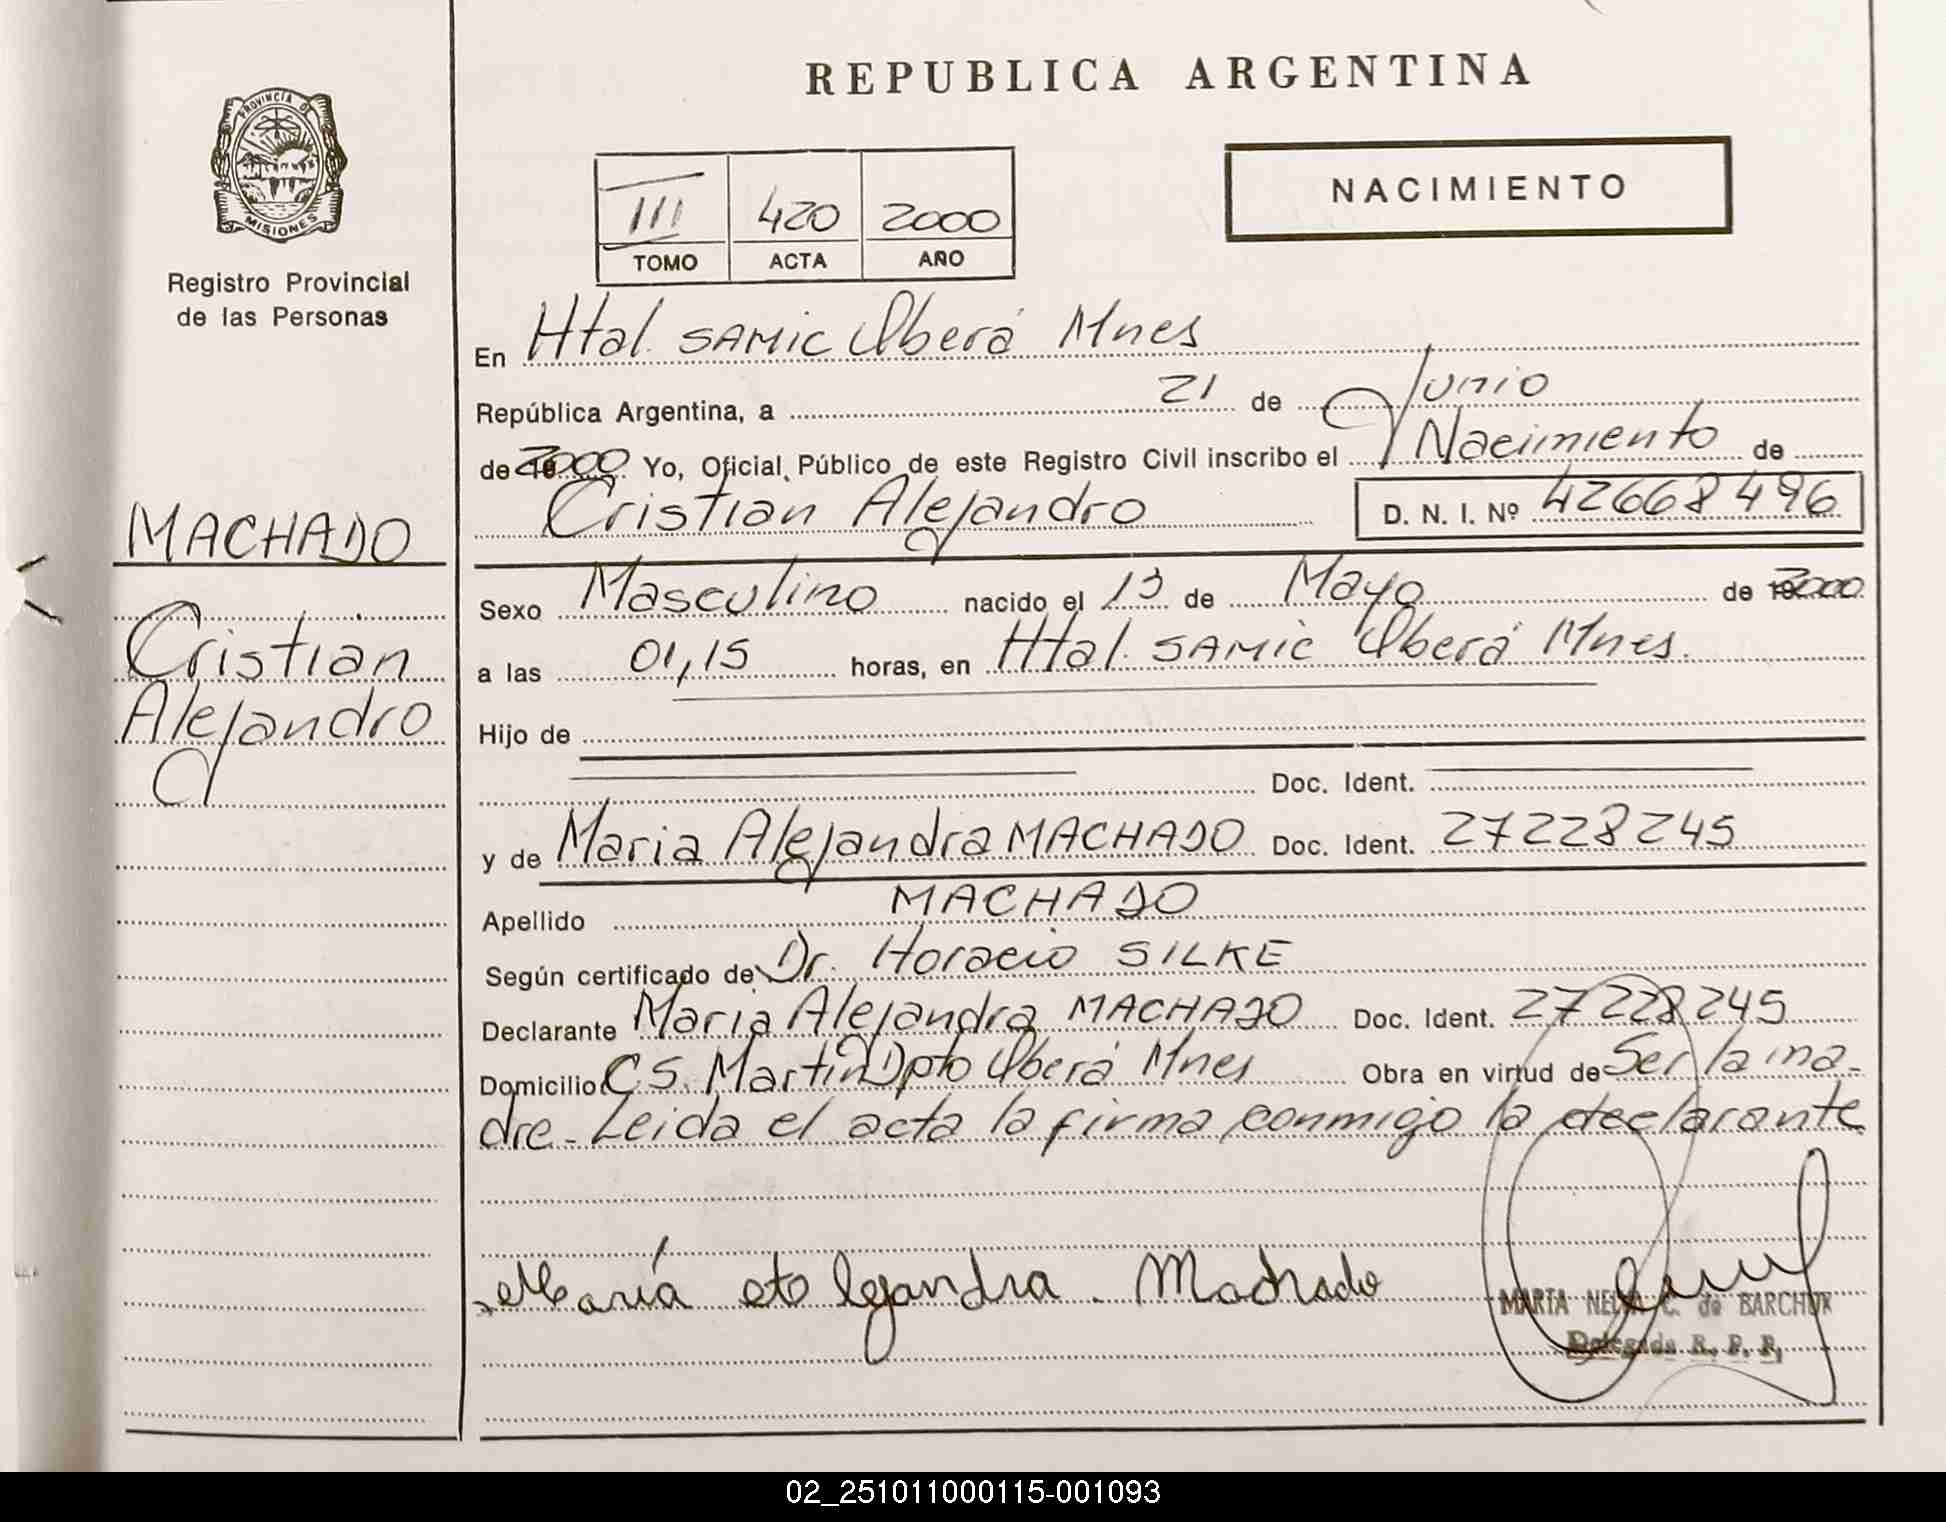 REPUBLICA ARGENTINA
PROVINCIA DE
MISIONES
Registro Provincial
de las Personas
III 420 2000
TOMO ACTA AÑO
NACIMIENTO
En Htal. SAMIC Oberá Mnes
República Argentina, a 21 de Junio
de 2000 Yo, Oficial Público de este Registro Civil inscribo el Nacimiento de
Cristian Alejandro D. N. I. Nº 42668496
MACHADO
Cristian
Alejandro
Sexo Masculino nacido el 13 de Mayo de 2000
a las 01,15 horas, en Htal. SAMIC Oberá Mnes.
Hijo de
Doc. Ident.
y de Maria Alejandra MACHADO Doc. Ident. 27228245
Apellido MACHADO
Según certificado de Dr. Horacio SILKE
Declarante Maria Alejandra MACHADO Doc. Ident. 27228245
Domicilio CS. Martín Dpto Oberá Mnes Obra en virtud de Ser la ma-
dre - Leida el acta la firma conmigo la declarante
María Alejandra. Machado
MARTA C. de BARCHUK
Delegada R. P. P.
02_251011000115-001093